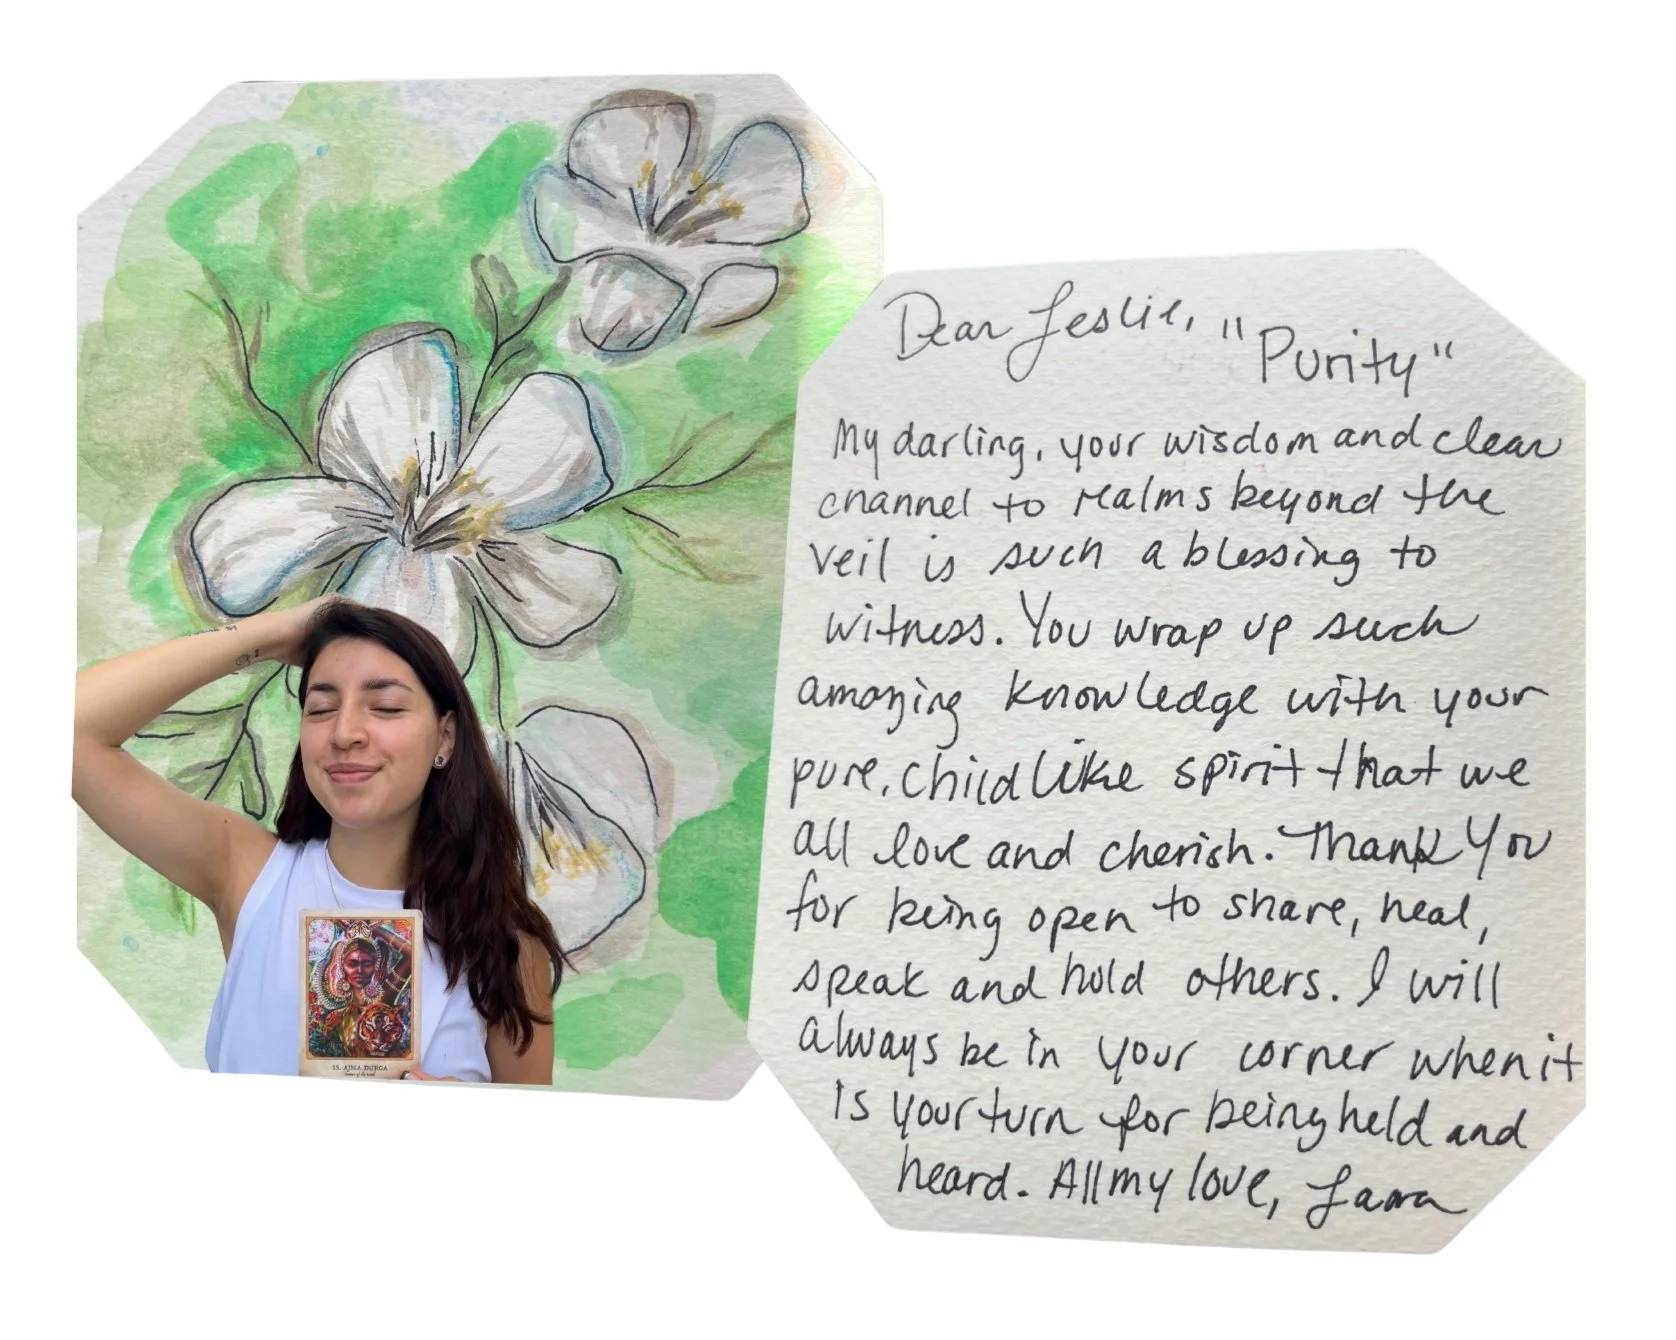 Dear Leslie, "Purity"
My darling, your wisdom and clear
channel to realms beyond the
veil is such a blessing to
witness. You wrap up such
amazing knowledge with your
pure, childlike spirit that we
all love and cherish. Thank You
for being open to share, heal,
speak and hold others. I will
always be in your corner when it
is your turn for being held and
heard. All my love,
35. AJNA DURGA